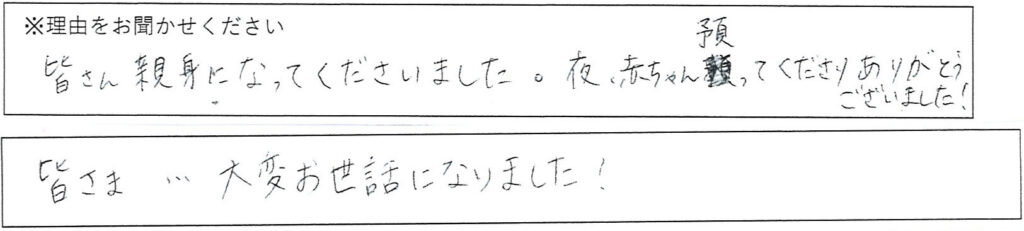 ※理由をお聞かせください
皆さん親身になってくださいました。夜、赤ちゃん預ってくださりありがとう
ございました!
皆さま … 大変お世話になりました!